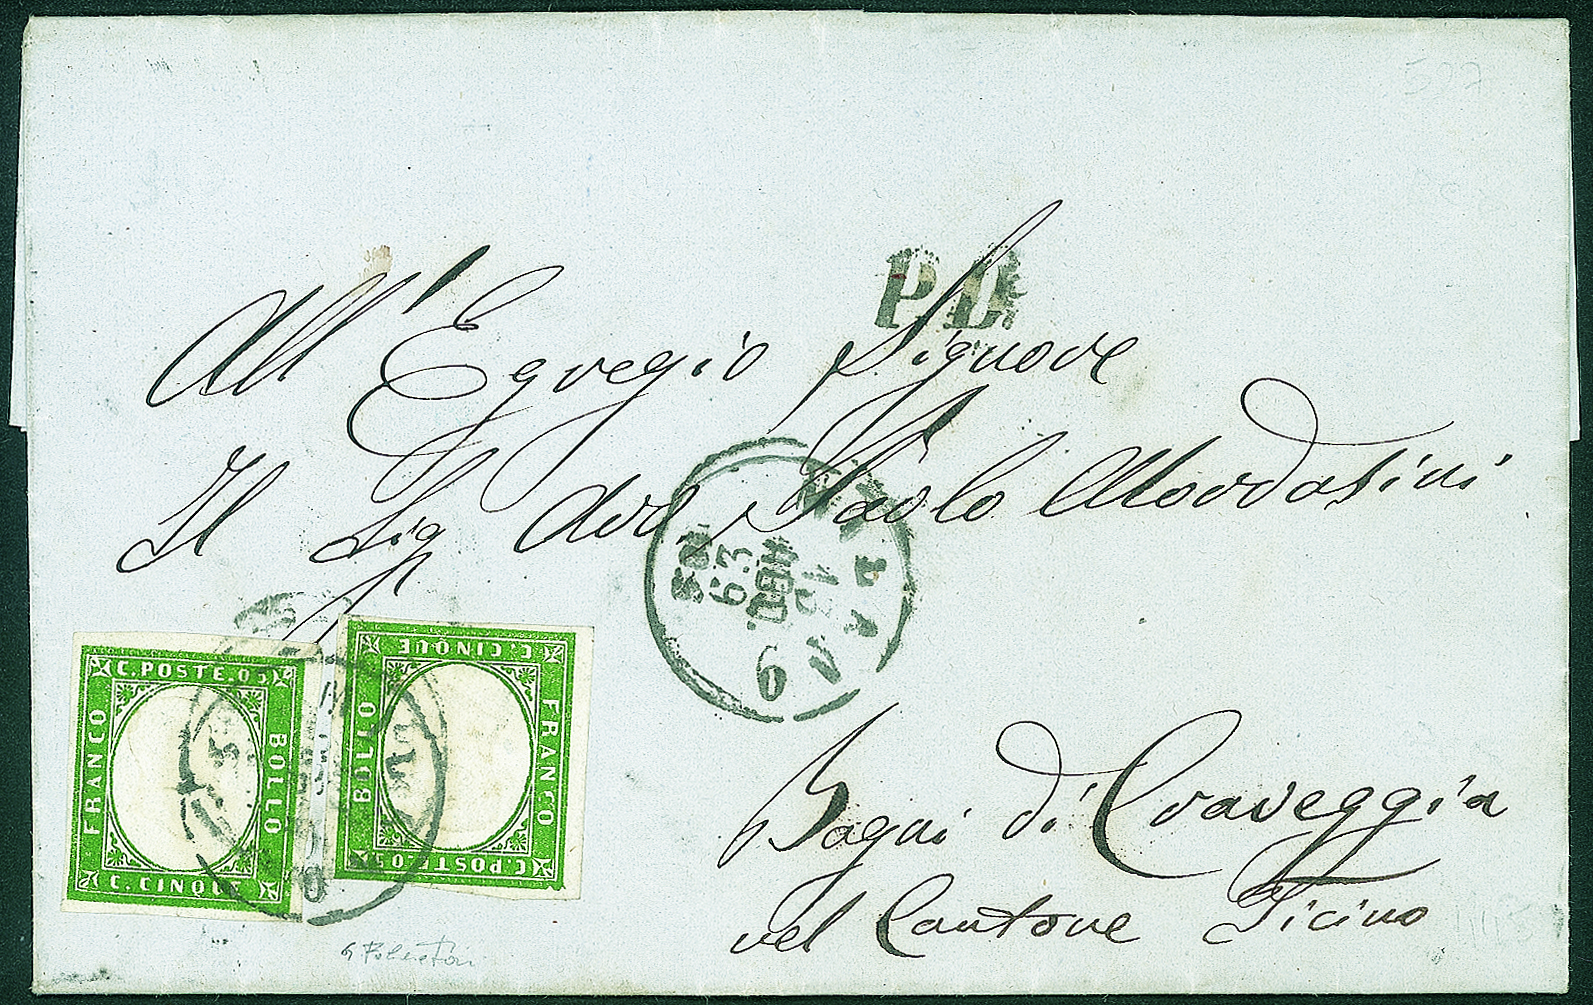 527
P.D.
All' Egregio Signore
Il Sig Paolo Mordasini
63
6
C. POSTE. 05
FRANCO
BOLLO
C. CINQUE
C. CINQUE
BOLLO
FRANCO
C. POSTE. 05
Bagni di Craveggia
nel Cantone Ticino